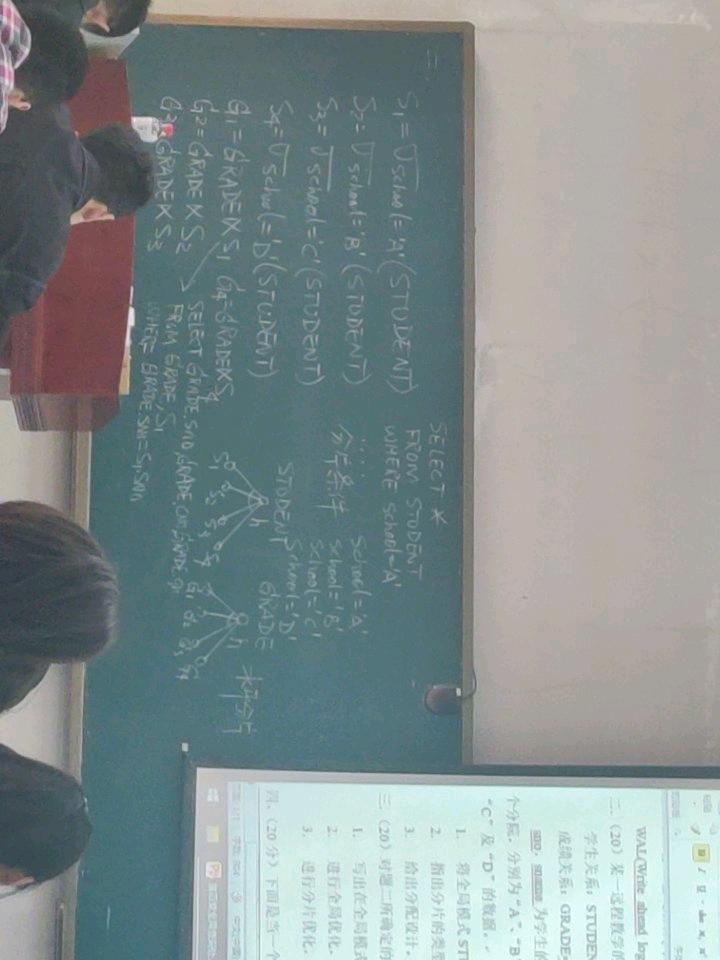 二.
S₁=σschool='A'(STUDENT)
S₂=σschool='B'(STUDENT)
S₃=σschool='C'(STUDENT)
S₄=σschool='D'(STUDENT)
G₁=GRADE⋉S₁ G₄=GRADE⋉S₄
G₂=GRADE⋉S₂
G₃=GRADE⋉S₃
SELECT GRADE.sno,GRADE.cno,GRADE.
FROM GRADE,S₁
WHERE GRADE.sno=S₁.sno
SELECT *
FROM STUDENT
WHERE school='A'
分片条件 school='A'
school='B'
school='C'
school='D'
STUDENT GRADE
h h 水平分片
S₁ S₂ S₃ S₄ G₁ G₂ G₃ G₄
WAL(Write ahead log
二、(20)某一远程教学的
学生关系:STUDEN
成绩关系:GRADE
sno,sname 为学生的
个分院,分别为“A”、“B”
“C”及“D”的数据。
1. 将全局模式 ST
2. 指出分片的类型
3. 给出分配设计。
三、(20)对题二所确定的
1. 写出在全局模式
2. 进行全局优化,
3. 进行分片优化,
四、(20分)下面是当一个